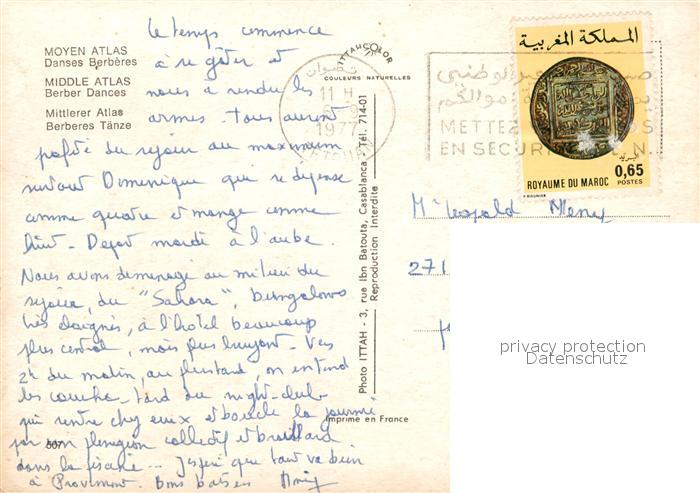 MOYEN ATLAS
Danses Berbères
MIDDLE ATLAS
Berber Dances
Mittlerer Atlas
Berberes Tänze
le temps commence
à se gâter et
nous à rendre les
armes - tous auront
profité du séjour au maximum
surtout Dominique qui se dépense
comme quatre et mange comme
huit - Départ mardi à l'aube.
Nous avons déménagé au milieu du
séjour, du "Sahara", bungalows
très éloignés, à l'hôtel beaucoup
plus central, mais plus bruyant - Vers
2h du matin, au plus tard, on entend
les couche-tard du night-club
qui rentre chez eux et boucle la journée
par un plongeon collectif et braillard
dans la piscine... J'espère que tout va bien
à Provimont. Bons baisers
507
Imprimé en France
ITTAHCOLOR
COULEURS NATURELLES
Photo ITTAH - 3, rue Ibn Batouta, Casablanca - Tél. 714-01
Reproduction Interdite
تطوان
11 H
1977
METTEZ
EN SECURI
المملكة المغربية
البريد
0,65
ROYAUME DU MAROC POSTES
Léopold
271
privacy protection
Datenschutz